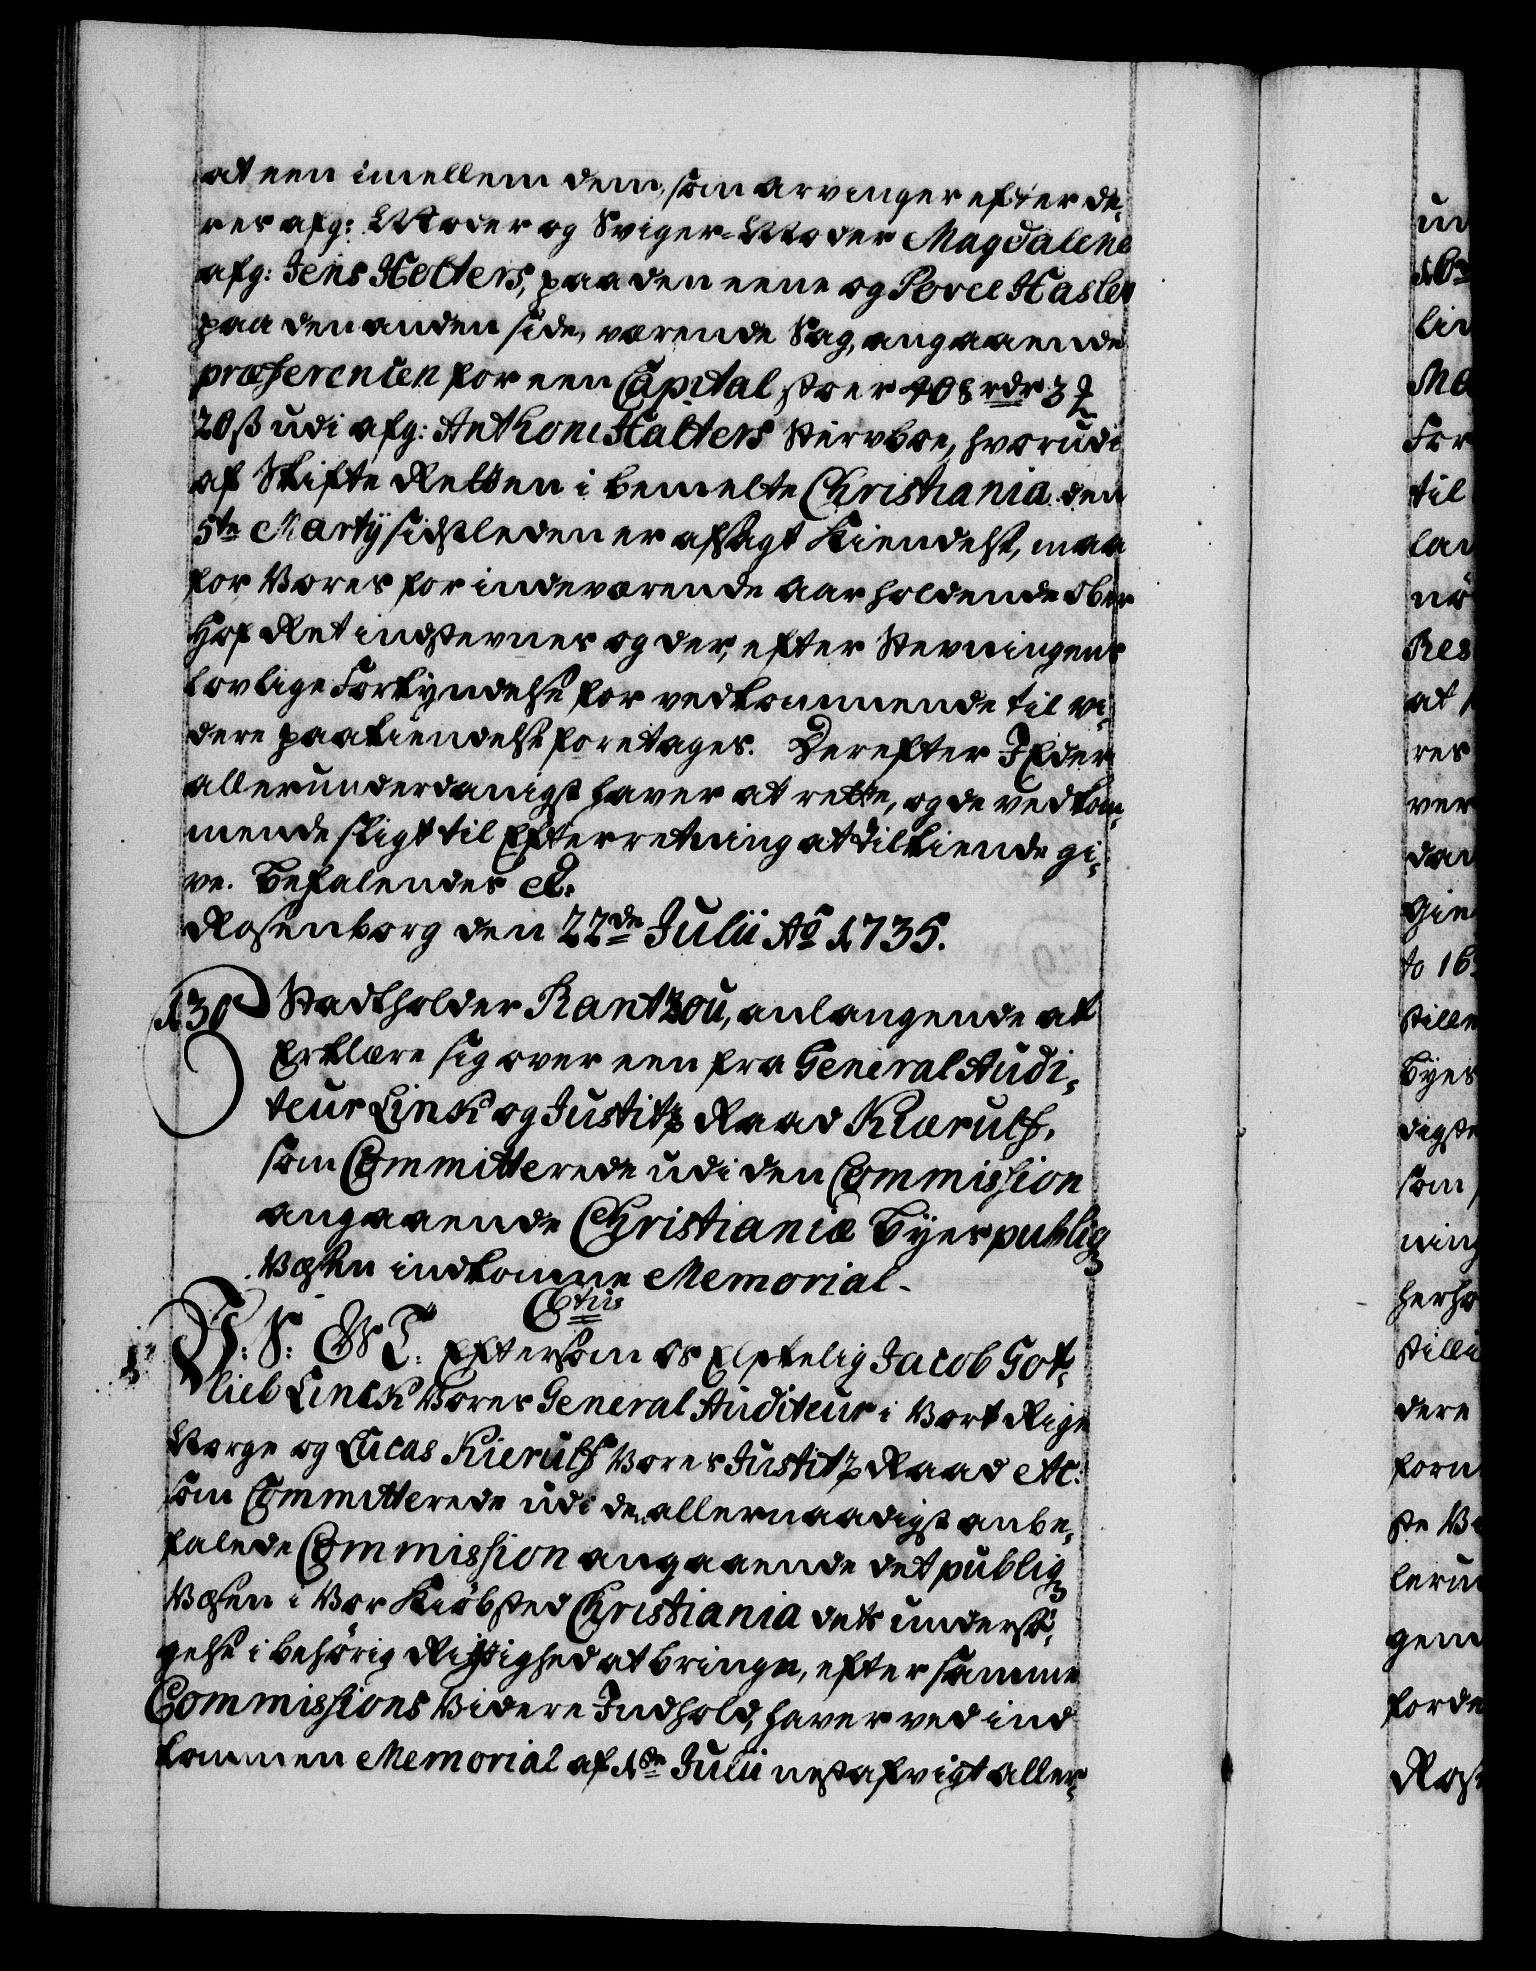 at een imellem dem, som arvinger efter de,
res afg: Moder og Sviger-Moder Magdalene
afg: Jens Holters, paa den eene og Povel Hasler
paa den anden side, værende Sag, angaaende
præferencen for een Capital stoer 408 rdr 3
20 ß udi afg: Anthoni Halters Stervboe, hvorudi
af Skifte Retten i bemelte Christiania den
5te Martij sidstleden er afsagt Kiendelse, maa
for Vores for indeværende Aar holdende Ober
Hof Ret indstevnes og der, efter Stevningens
lovlige Forkyndelse for vedkommende til vi,
dere paakiendelse foretages. Derefter I Eder
allerunderdanigst haver at rette, og de vedkom,
mende sligt til Efterretning at tilkiende gi,
ve. Befalendes etc.
Rosenborg den 22de Julii Aō 1735.
130
Stadtholder Rantzou, anlangende at
Erklære sig over een fra General Audi,
teur Link og Justitz Raad Kiærulf,
som Committerede udi den Commission
angaaende Christianiæ Byes publiq
Væsen indkomne Memorial.
Ctus
V: S: G T: Eftersom Os Elskelig Jacob Got,
lieb Linck Vores General Auditeur i Vort Rige
Norge og Lucas Kierulf Vores Justitz Raad etc:
som Committerede udi den allernaadigst anbe,
falede Commission angaaende det publiq
Væsen i Vor Kiøbsted Christiania dets undersø,
gelse i behørig Rigtighed at bringe, efter samme
Commissions Videre Indhold, haver ved ind
kommen Memorial af 1ste Julii nestafvigt aller,